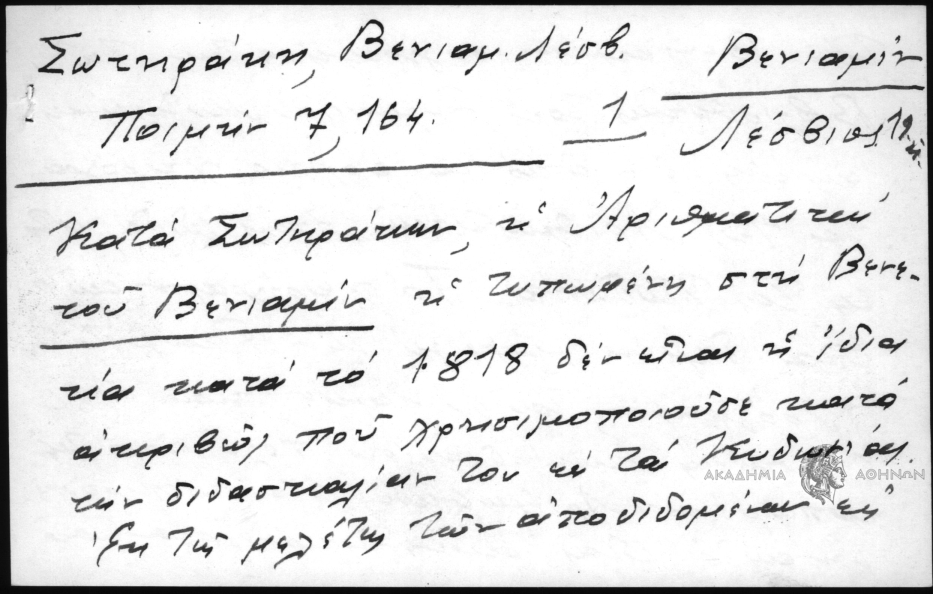 Σωτηράκη, Βενιαμ. Λέσβ.
Βενιαμίν
Ποιμήν 7, 164.
1
Λέσβιος 19
Κατά Σωτηράκην, ἡ Ἀριθμητική
τοῦ Βενιαμίν ἡ τυπωμένη στή Βενε-
τία κατά τό 1818 δέν εἶναι ἡ ἴδια
ἀκριβῶς πού χρησιμοποιοῦσε κατά
τήν διδασκαλίαν του εἰς τάς Κυδωνίας.
ΑΚΑΔΗΜΙΑ ΑΘΗΝΩΝ
Ἐκ τῆς μελέτης τῶν ἀποδιδομένων εἰς